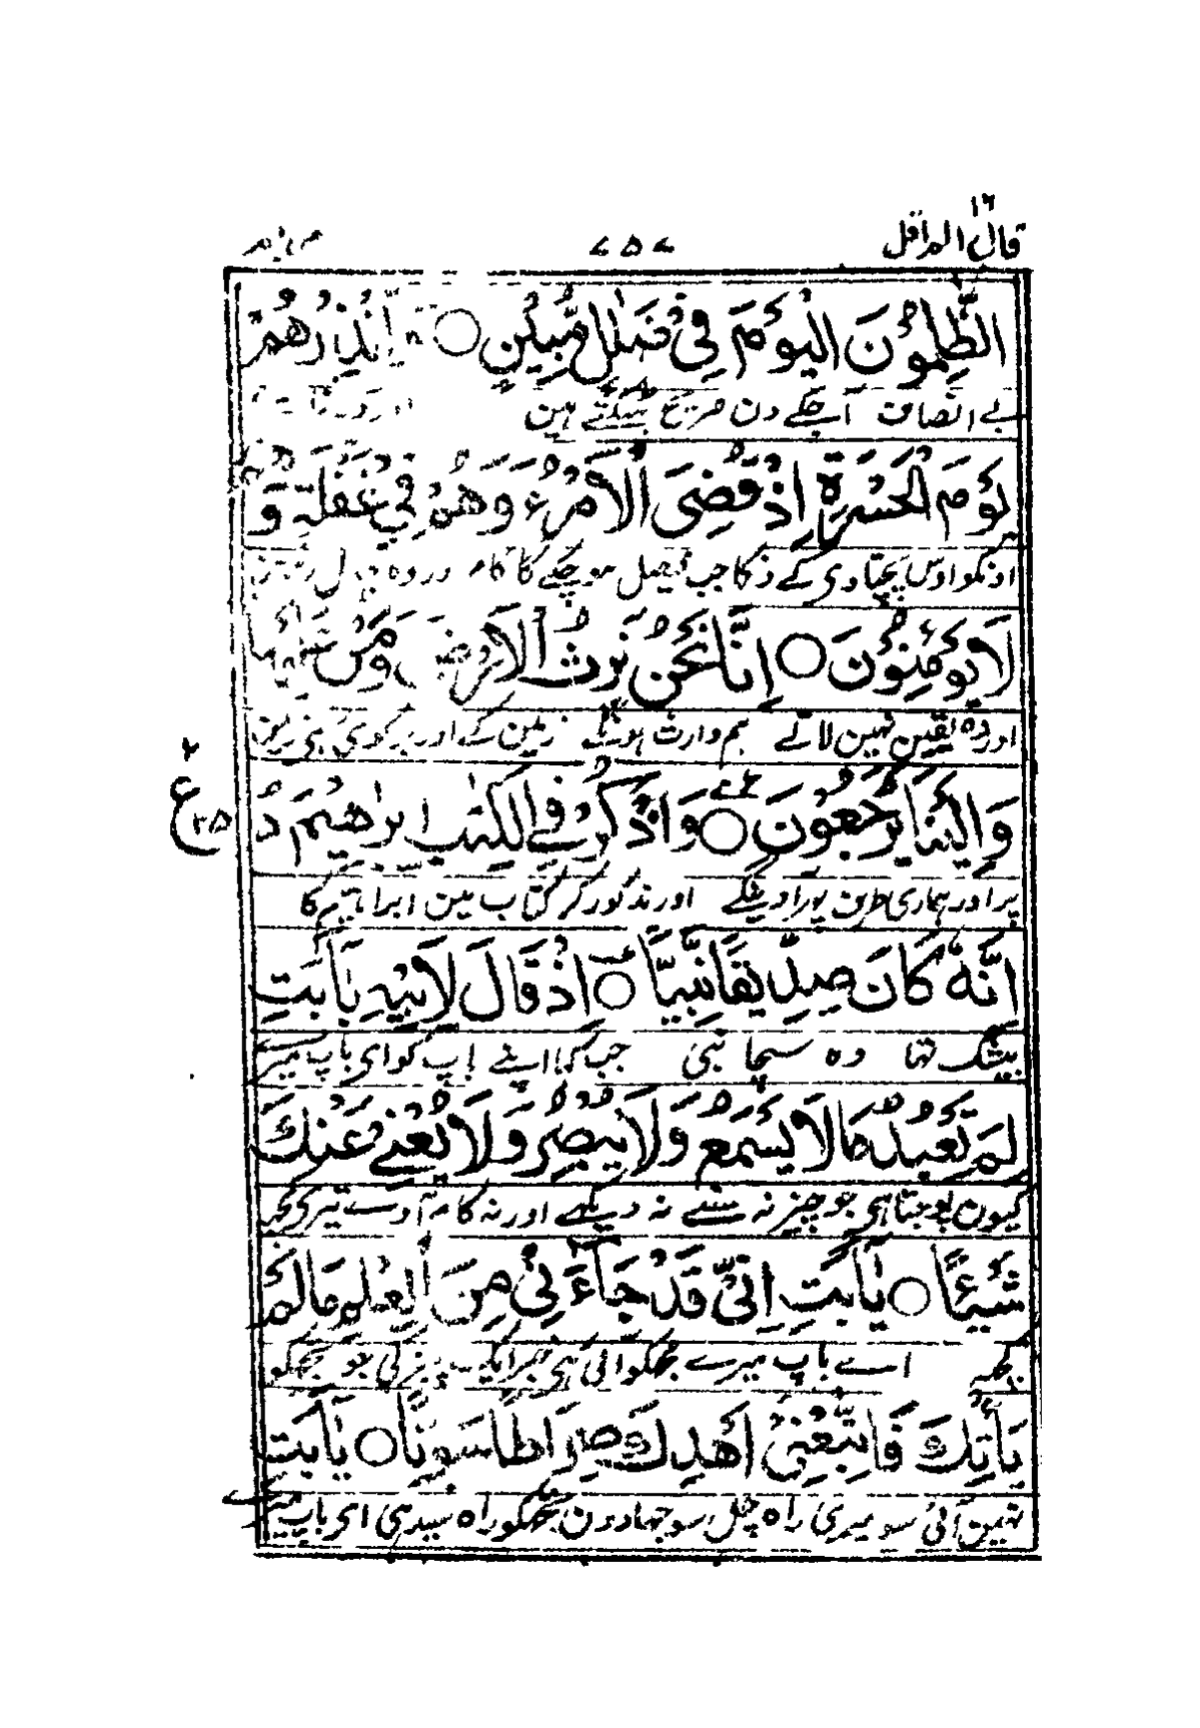 ۱۶
قال الم اقل ۷۵۷ مریم
الظّٰلِمُوْنَ الْيَوْمَ فِيْ ضَلٰلٍ مُّبِيْنٍ ○ اَنْذِرْهُمْ
بے انصاف آجکے دن صریح بھٹکتے ہین
يَوْمَ الْحَسْرَةِ اِذْ قُضِيَ الْاَمْرُ وَهُمْ فِيْ غَفْلَةٍ وَّ
اونکو اوس پچتاوی کے دن کا جب فیصل ہو چکے گا کام اور وہ
لَا يُؤْمِنُوْنَ ○ اِنَّا نَحْنُ نَرِثُ الْاَرْضَ وَمَنْ عَلَيْهَا
اور وہ یقین نہین لاتے ہم وارث ہونگے زمین کے اور جو کوئی ہی زمین
وَاِلَيْنَا يُرْجَعُوْنَ ○ وَاذْكُرْ فِي الْكِتٰبِ اِبْرٰهِيْمَ
۲
ع
۲۵
پر اور ہماری طرف پھر آوینگے اور مذکور کر کتاب مین ابراہیم کا
اِنَّهٗ كَانَ صِدِّيْقًا نَّبِيًّا ○ اِذْ قَالَ لِاَبِيْهِ يٰاَبَتِ
بیشک تھا وہ سچا نبی جب کہا اپنے باپ کو ای باپ میرے
لِمَ تَعْبُدُ مَا لَا يَسْمَعُ وَلَا يُبْصِرُ وَلَا يُغْنِيْ عَنْكَ
کیون پوجتا ہی جو چیز نہ سنے نہ دیکھے اور نہ کام آوے تیری کچھ
شَيْئًا ○ يٰاَبَتِ اِنِّيْ قَدْ جَآءَنِيْ مِنَ الْعِلْمِ مَا لَمْ
کچھ اے باپ میرے مجھکو آئی ہی خبر ایک چیز کی جو تجھکو
يَاْتِكَ فَاتَّبِعْنِيْ اَهْدِكَ صِرَاطًا سَوِيًّا ○ يٰاَبَتِ
نہین آئی سو میری راہ چل سوجھا دون تجھکو راہ سیدہی ای باپ میرے